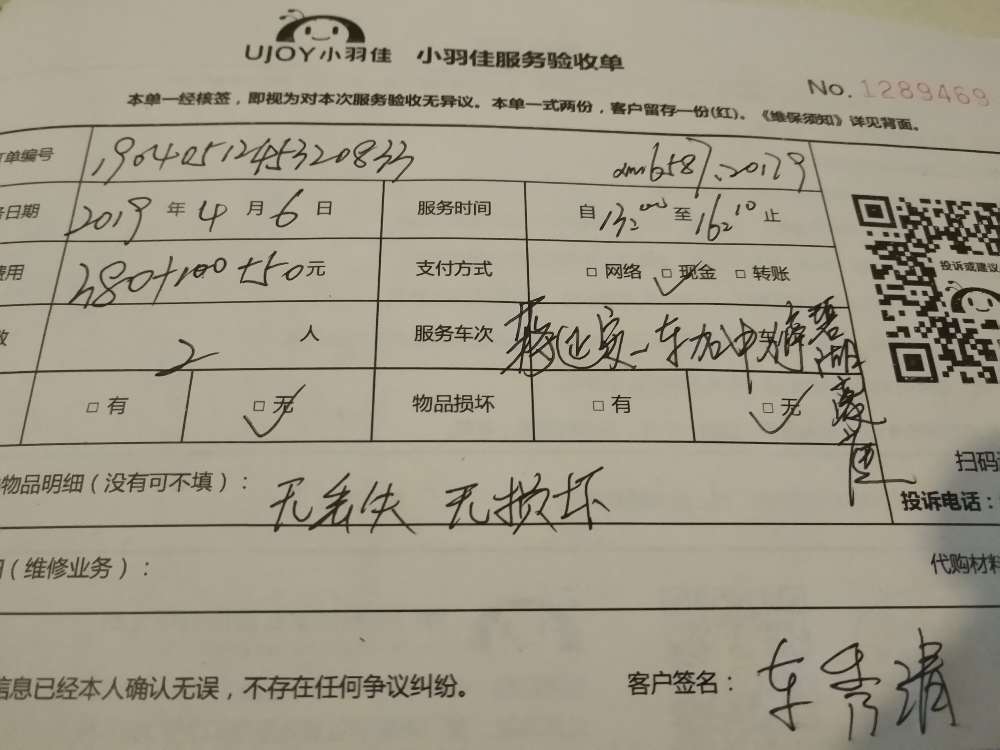 UJOY小羽佳 小羽佳服务验收单
No. 1289469
本单一经核签，即视为对本次服务验收无异议。本单一式两份，客户留存一份(红)。《维保须知》详见背面。
单编号 1904051245320833
日期 2019 年 4 月 6 日 服务时间 自 13:00 至 16:10 止
费用 380+100+50元 支付方式 □ 网络 □ 现金 □ 转账
投诉或建议
2 人 服务车次 一车加中
□ 有 □ 无 物品损坏 □ 有 □ 无
物品明细（没有可不填）： 无丢失 无损坏
扫码
投诉电话：
（维修业务）： 代购材料
信息已经本人确认无误，不存在任何争议纠纷。 客户签名：车秀清